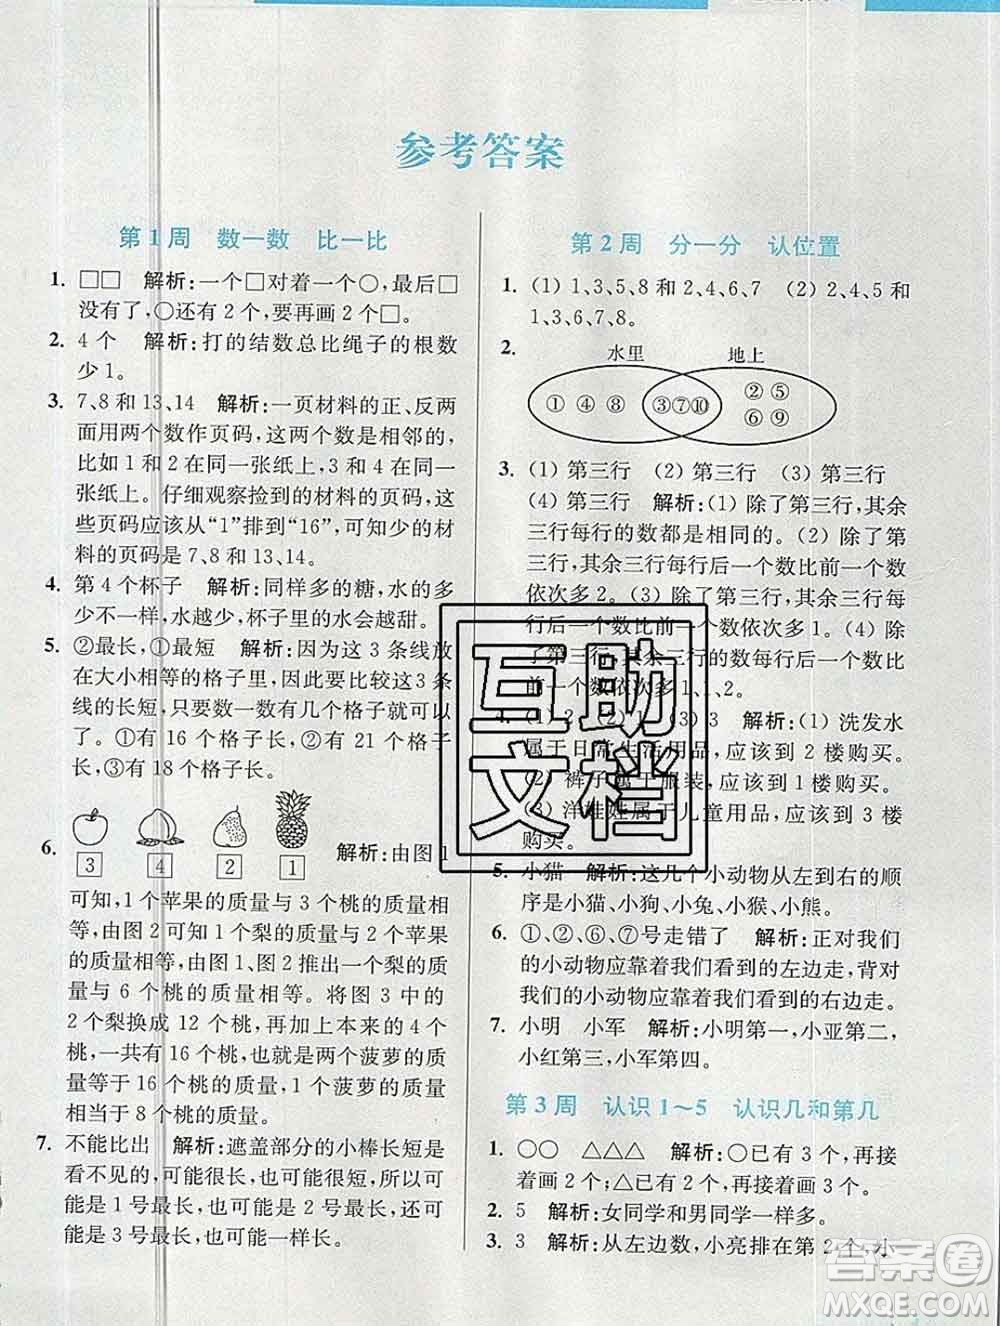 参考答案
第1周 数一数 比一比
1. □□ 解析:一个□对着一个○,最后□
没有了,○还有2个,要再画2个□。
2. 4个 解析:打的结数总比绳子的根数
少1。
3. 7、8和13、14 解析:一页材料的正、反两
面用两个数作页码,这两个数是相邻的,
比如1和2在同一张纸上,3和4在同一
张纸上。仔细观察捡到的材料的页码,这
些页码应该从“1”排到“16”,可知少的材
料的页码是7、8和13、14。
4. 第4个杯子 解析:同样多的糖,水的多
少不一样,水越少,杯子里的水会越甜。
5. ②最长,①最短 解析:因为这3条线放
在大小相等的格子里,因此要比较这3条
线的长短,只要数一数有几个格子就可以
了。①有16个格子长,②有21个格子
长,③有18个格子长。
6. 3 4 2 1 解析:由图1
可知1个苹果的质量与3个桃的质量相
等,由图2可知1个梨的质量与2个苹果
的质量相等,由图1、图2推出一个梨的质
量与6个桃的质量相等。将图3中的
2个梨换成12个桃,再加上本来的4个
桃,一共有16个桃,也就是两个菠萝的质
量等于16个桃的质量,1个菠萝的质量相
当于8个桃的质量。
7. 不能比出 解析:遮盖部分的小棒长短是
看不见的,可能很长,也可能很短,所以可
能是1号最长,也可能是2号最长,可能
是3号最长,也可能一样长。
第2周 分一分 认位置
1. (1) 1、3、5、8和2、4、6、7 (2) 2、4、5和
1、3、6、7、8。
2. 水里 地上
①④⑧ ③⑦⑩ ②⑤
⑥⑨
3. (1) 第三行 (2) 第三行 (3) 第三行
(4) 第三行 解析:(1) 除了第三行,其余
三行每行的数都是相同的。(2) 除了第
三行,其余三行每行后一个数比前一个数
依次多2。(3) 除了第三行,其余三行每
行后一个数比前一个数依次多1。(4) 除
了第三行,其余三行的数每行后一个数比
前一个数依次多1、1、2。
4. (1) 2 (2) 1 (3) 3 解析:(1) 洗发水
属于日常生活用品,应该到2楼购买。
(2) 裤子属于服装,应该到1楼购买。
(3) 洋娃娃属于儿童用品,应该到3楼
购买。
5. 小猫 解析:这几个小动物从左到右的顺
序是小猫、小狗、小兔、小猴、小熊。
6. ①、②、⑥、⑦号走错了 解析:正对我们
的小动物应靠着我们看到的左边走,背对
我们的小动物应靠着我们看到的右边走。
7. 小明 小军 解析:小明第一,小亚第二,
小红第三,小军第四。
第3周 认识1~5 认识几和第几
1. ○○ △△△ 解析:○已有3个,再接
着画2个;△已有2个,再接着画3个。
2. 5 解析:女同学和男同学一样多。
3. 3 解析:从左边数,小亮排在第2个,小
互助
文档
答案圈
MXQE.COM